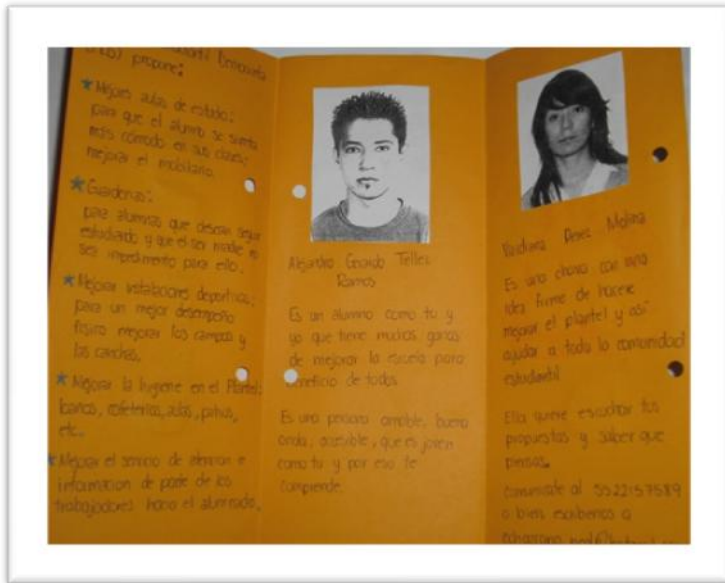 propone:
★Mejores aulas de estudio:
para que el alumno se sienta
más cómodo en sus clases,
mejorar el mobiliario.
★Guarderias:
para alumnas que desean seguir
estudiando y que el ser madre no
sea impedimento para ello.
★Mejorar instalaciones deportivas:
para un mejor desempeño
fisico mejorar los campos y
las canchas.
★Mejorar la higiene en el Plantel:
baños, cafeterias, aulas, patios,
etc..
★Mejorar el servicio de atencion e
informacion de parte de los
trabajadores hacia el alumnado.
Alejandro Gerardo Tellez
Ramos
Es un alumno como tu y
yo que tiene muchas ganas
de mejorar la escuela para
beneficio de todos
Es una persona amable, buena
onda, accesible, que es joven
como tu y por eso te
comprende.
Perez Molina
Es una chava con una
idea firme de hacer
mejorar el plantel y así
ayudar a toda la comunidad
estudiantil
Ella quiere escuchar tus
propuestas y saber que
piensas.
Comunicate al 5522157589
o bien escribenos a